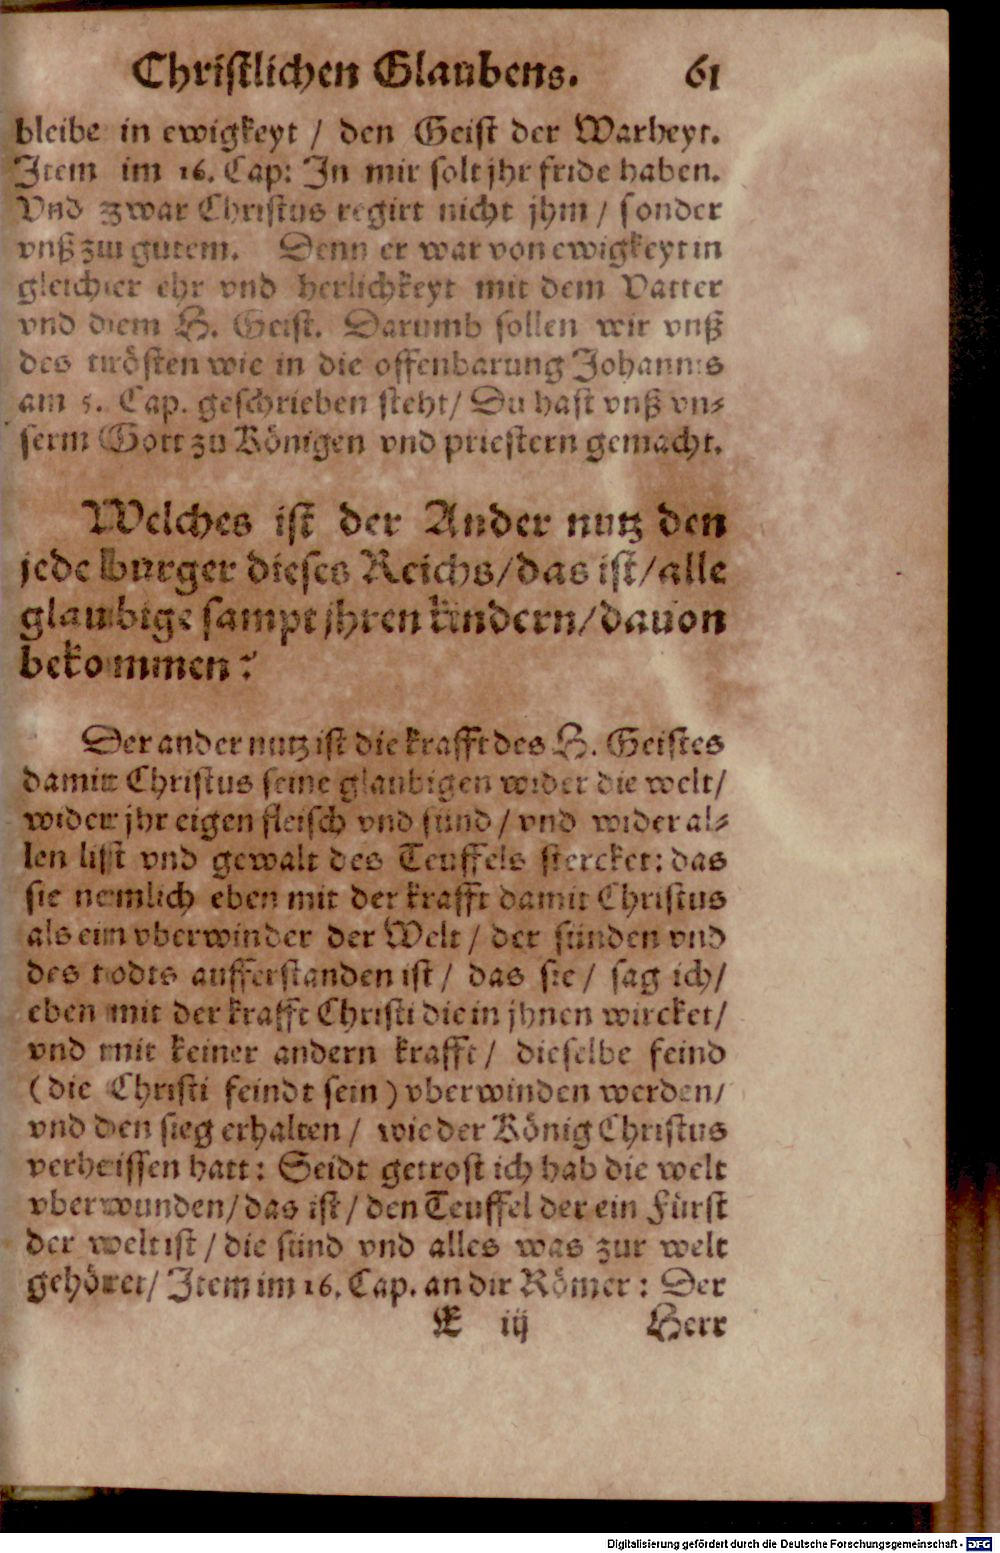 Christlichen Glaubens. 61
bleibe in ewigkeyt / den Geist der Warheyt.
Item im 16. Cap: In mir solt jhr fride haben.
Vnd zwar Christus regirt nicht jhm / sonder
vnß zu gutem. Denn er war von ewigkeyt in
gleicher ehr vnd herlichkeyt mit dem Vatter
vnd dem H. Geist. Darumb sollen wir vnß
des trösten wie in die offenbarung Johannis
am 5. Cap. geschrieben steht / Du hast vnß vn⸗
serm Gott zu Königen vnd priestern gemacht.
Welches ist der Ander nutz den
jede burger dieses Reichs / das ist / alle
glaubige sampt jhren kindern / dauon
bekommen?
Der ander nutz ist die krafft des H. Geistes
damit Christus seine glaubigen wider die welt /
wider jhr eigen fleisch vnd sünd / vnd wider al⸗
len list vnd gewalt des Teuffels stercket: das
sie nemlich eben mit der krafft damit Christus
als ein vberwinder der Welt / der sünden vnd
des todts aufferstanden ist / das sie / sag ich /
eben mit der krafft Christi die in jhnen wircket /
vnd mit keiner andern krafft / dieselbe feind
(die Christi feindt sein) vberwinden werden /
vnd den sieg erhalten / wie der König Christus
verheissen hatt: Seidt getrost ich hab die welt
vberwunden / das ist / den Teuffel der ein Fürst
der welt ist / die sünd vnd alles was zur welt
gehöret / Item im 16. Cap. an dir Römer: Der
K iij Herr
Digitalisierung gefördert durch die Deutsche Forschungsgemeinschaft - DFG